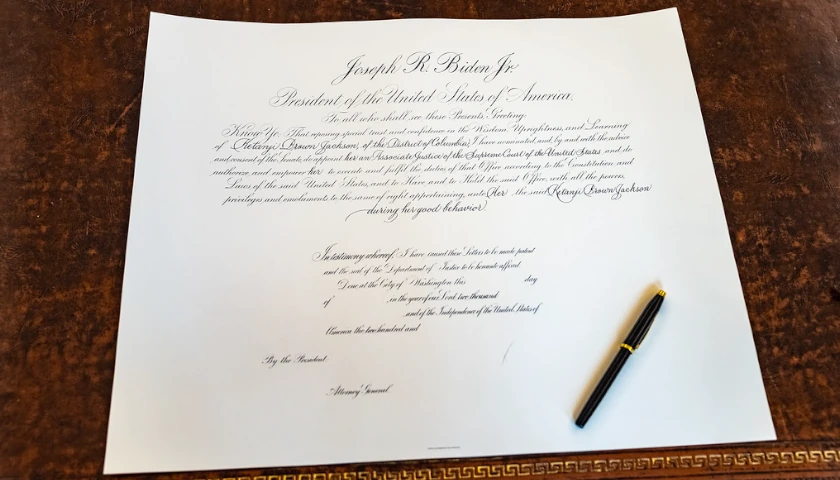 Joseph R. Biden Jr.
President of the United States of America.
To all who shall see these Presents, Greeting:
Know Ye, That reposing special trust and confidence in the Wisdom, Uprightness, and Learning
of Ketanji Brown Jackson, of the District of Columbia, I have nominated, and, by and with the advice
and consent of the Senate, do appoint her an Associate Justice of the Supreme Court of the United States and do
authorize and empower her to execute and fulfil the duties of that Office according to the Constitution and
Laws of the said United States, and to Have and to Hold the said Office, with all the powers,
privileges and emoluments to the same of right appertaining, unto Her, the said Ketanji Brown Jackson
during her good behavior.
In testimony whereof, I have caused these Letters to be made patent
and the seal of the Department of Justice to be hereunto affixed.
Done at the City of Washington this day
of , in the year of our Lord two thousand
, and of the Independence of the United States of
America the two hundred and
By the President:
Attorney General.